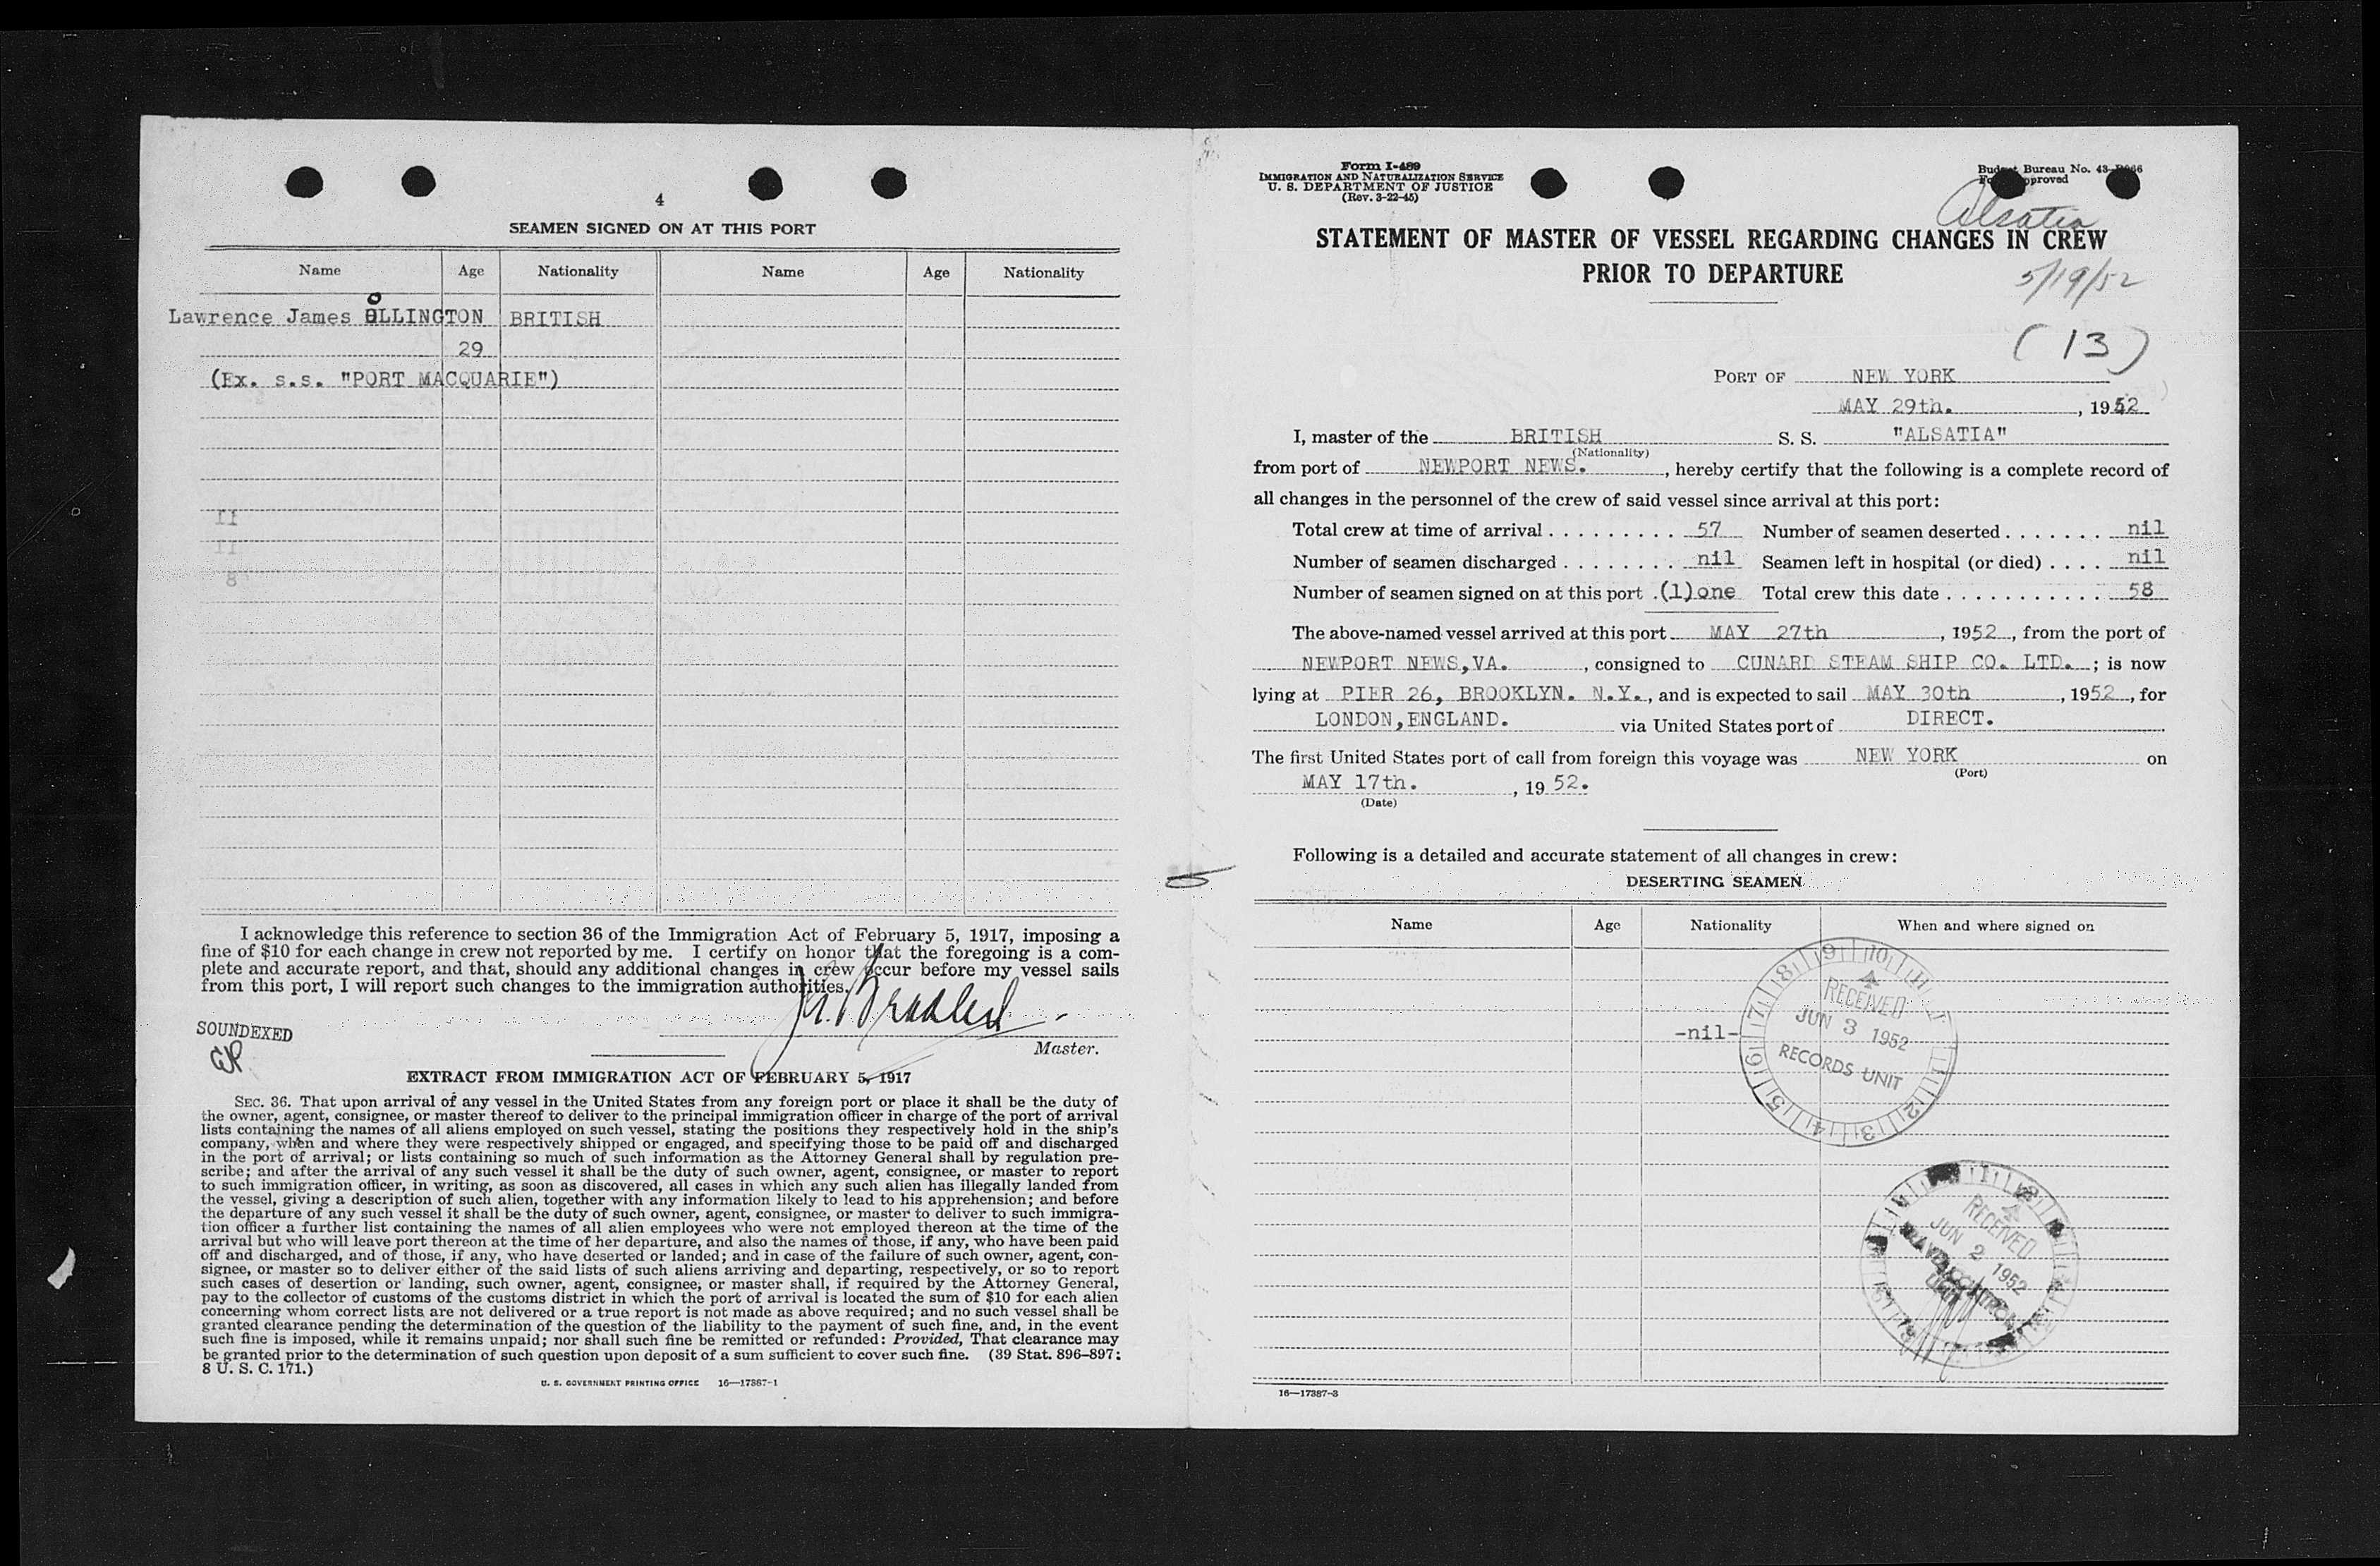 4
SEAMEN SIGNED ON AT THIS PORT
Name Age Nationality Name Age Nationality
O
Lawrence James OLLINGTON BRITISH
29
(Ex. s.s. "PORT MACQUARIE")
11
11
8
I acknowledge this reference to section 36 of the Immigration Act of February 5, 1917, imposing a
fine of $10 for each change in crew not reported by me. I certify on honor that the foregoing is a com-
plete and accurate report, and that, should any additional changes in crew occur before my vessel sails
from this port, I will report such changes to the immigration authorities.
SOUNDEXED
Master.
EXTRACT FROM IMMIGRATION ACT OF FEBRUARY 5, 1917
SEC. 36. That upon arrival of any vessel in the United States from any foreign port or place it shall be the duty of
the owner, agent, consignee, or master thereof to deliver to the principal immigration officer in charge of the port of arrival
lists containing the names of all aliens employed on such vessel, stating the positions they respectively hold in the ship's
company, when and where they were respectively shipped or engaged, and specifying those to be paid off and discharged
in the port of arrival; or lists containing so much of such information as the Attorney General shall by regulation pre-
scribe; and after the arrival of any such vessel it shall be the duty of such owner, agent, consignee, or master to report
to such immigration officer, in writing, as soon as discovered, all cases in which any such alien has illegally landed from
the vessel, giving a description of such alien, together with any information likely to lead to his apprehension; and before
the departure of any such vessel it shall be the duty of such owner, agent, consignee, or master to deliver to such immigra-
tion officer a further list containing the names of all alien employees who were not employed thereon at the time of the
arrival but who will leave port thereon at the time of her departure, and also the names of those, if any, who have been paid
off and discharged, and of those, if any, who have deserted or landed; and in case of the failure of such owner, agent, con-
signee, or master so to deliver either of the said lists of such aliens arriving and departing, respectively, or so to report
such cases of desertion or landing, such owner, agent, consignee, or master shall, if required by the Attorney General,
pay to the collector of customs of the customs district in which the port of arrival is located the sum of $10 for each alien
concerning whom correct lists are not delivered or a true report is not made as above required; and no such vessel shall be
granted clearance pending the determination of the question of the liability to the payment of such fine, and, in the event
such fine is imposed, while it remains unpaid; nor shall such fine be remitted or refunded: Provided, That clearance may
be granted prior to the determination of such question upon deposit of a sum sufficient to cover such fine. (39 Stat. 896–897;
8 U. S. C. 171.)
U. S. GOVERNMENT PRINTING OFFICE 16—17387-1
Form I-489
IMMIGRATION AND NATURALIZATION SERVICE
U. S. DEPARTMENT OF JUSTICE
(Rev. 3-22-45)
Budget Bureau No.
approved
Alsatia
STATEMENT OF MASTER OF VESSEL REGARDING CHANGES IN CREW
PRIOR TO DEPARTURE
5/19/52
(13)
PORT OF NEW YORK
MAY 29th. , 1952
I, master of the BRITISH S. S. "ALSATIA"
(Nationality)
from port of NEWPORT NEWS. , hereby certify that the following is a complete record of
all changes in the personnel of the crew of said vessel since arrival at this port:
Total crew at time of arrival . . . . . . . . . 57 Number of seamen deserted . . . . . . . nil
Number of seamen discharged . . . . . . . . nil Seamen left in hospital (or died) . . . . nil
Number of seamen signed on at this port . (1)one Total crew this date . . . . . . . . . . . 58
The above-named vessel arrived at this port MAY 27th , 1952 , from the port of
NEWPORT NEWS,VA. , consigned to CUNARD STEAM SHIP CO. LTD. ; is now
lying at PIER 26, BROOKLYN. N.Y. , and is expected to sail MAY 30th , 1952 , for
LONDON,ENGLAND. via United States port of DIRECT.
The first United States port of call from foreign this voyage was NEW YORK on
(Port)
MAY 17th. , 19 52.
(Date)
Following is a detailed and accurate statement of all changes in crew:
DESERTING SEAMEN
Name Age Nationality When and where signed on
-nil-
RECEIVED
JUN 3 1952
RECORDS UNIT
RECEIVED
JUN 2 1952
16—17387-3